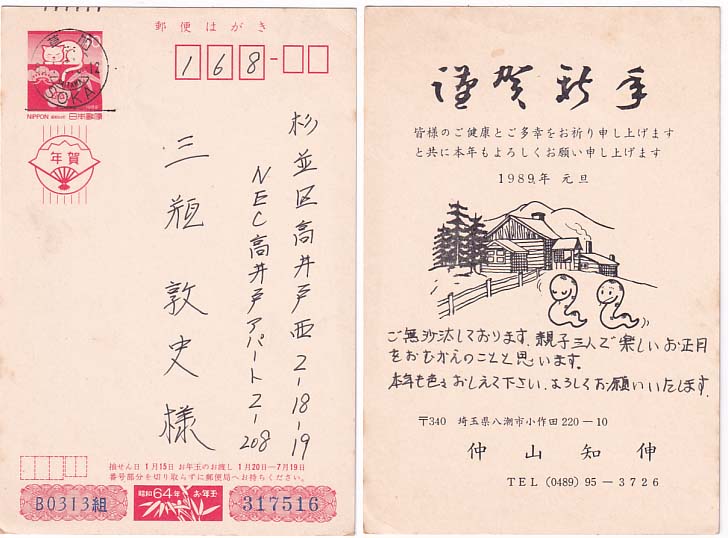 郵便はがき
168-
草加
12
SOKA
NIPPON 日本郵便
年賀
杉並区高井戸西2-18-19
NEC高井戸アパート2-208
三瓶敦史様
抽せん日 1月15日 お年玉のお渡し 1月20日-7月19日
番号部分を切り取らずに郵便局へお持ちください。
B0313組
昭和64年 お年玉
317516
謹賀新年
皆様のご健康とご多幸をお祈り申し上げます
と共に本年もよろしくお願い申し上げます
1989年 元旦
ご無沙汰しております。親子三人で楽しいお正月
をおむかえのことと思います。
本年も色々おしえて下さい。よろしくお願いいたします。
〒340 埼玉県八潮市小作田220-10
仲山知伸
TEL (0489) 95-3726